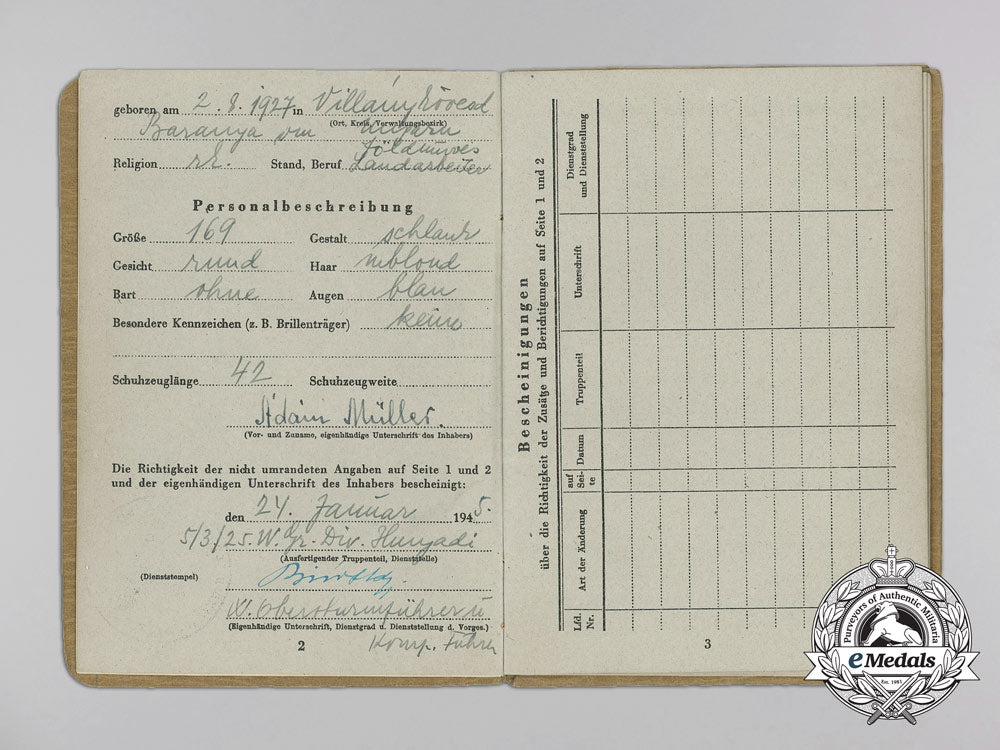 geboren am 2. 8. 1927 in Villánykövesd
(Ort, Kreis, Verwaltungsbezirk)
Baranya Ungarn
Földmüves
Religion r.k. Stand, Beruf Landarbeiter
Personalbeschreibung
Größe 169 Gestalt schlank
Gesicht rund Haar mblond
Bart ohne Augen blau
Besondere Kennzeichen (z. B. Brillenträger) keine
Schuhzeuglänge 42 Schuhzeugweite
Adam Müller.
(Vor- und Zuname, eigenhändige Unterschrift des Inhabers)
Die Richtigkeit der nicht umrandeten Angaben auf Seite 1 und 2
und der eigenhändigen Unterschrift des Inhabers bescheinigt:
den 24. Januar 1945.
5/3/25. W. Gr. Div. Hunyadi
(Ausfertigender Truppenteil, Dienststelle)
(Dienststempel)
W. Obersturmführer u
(Eigenhändige Unterschrift, Dienstgrad u. Dienststellung d. Vorges.)
Komp. Führer
2
Bescheinigungen
über die Richtigkeit der Zusätze und Berichtigungen auf Seite 1 und 2
Lfd. Nr.
Art der Änderung
auf Sei-te
Datum
Truppenteil
Unterschrift
Dienstgrad und Dienststellung
3
Purveyors of Authentic Militaria
eMedals
Est. 1981